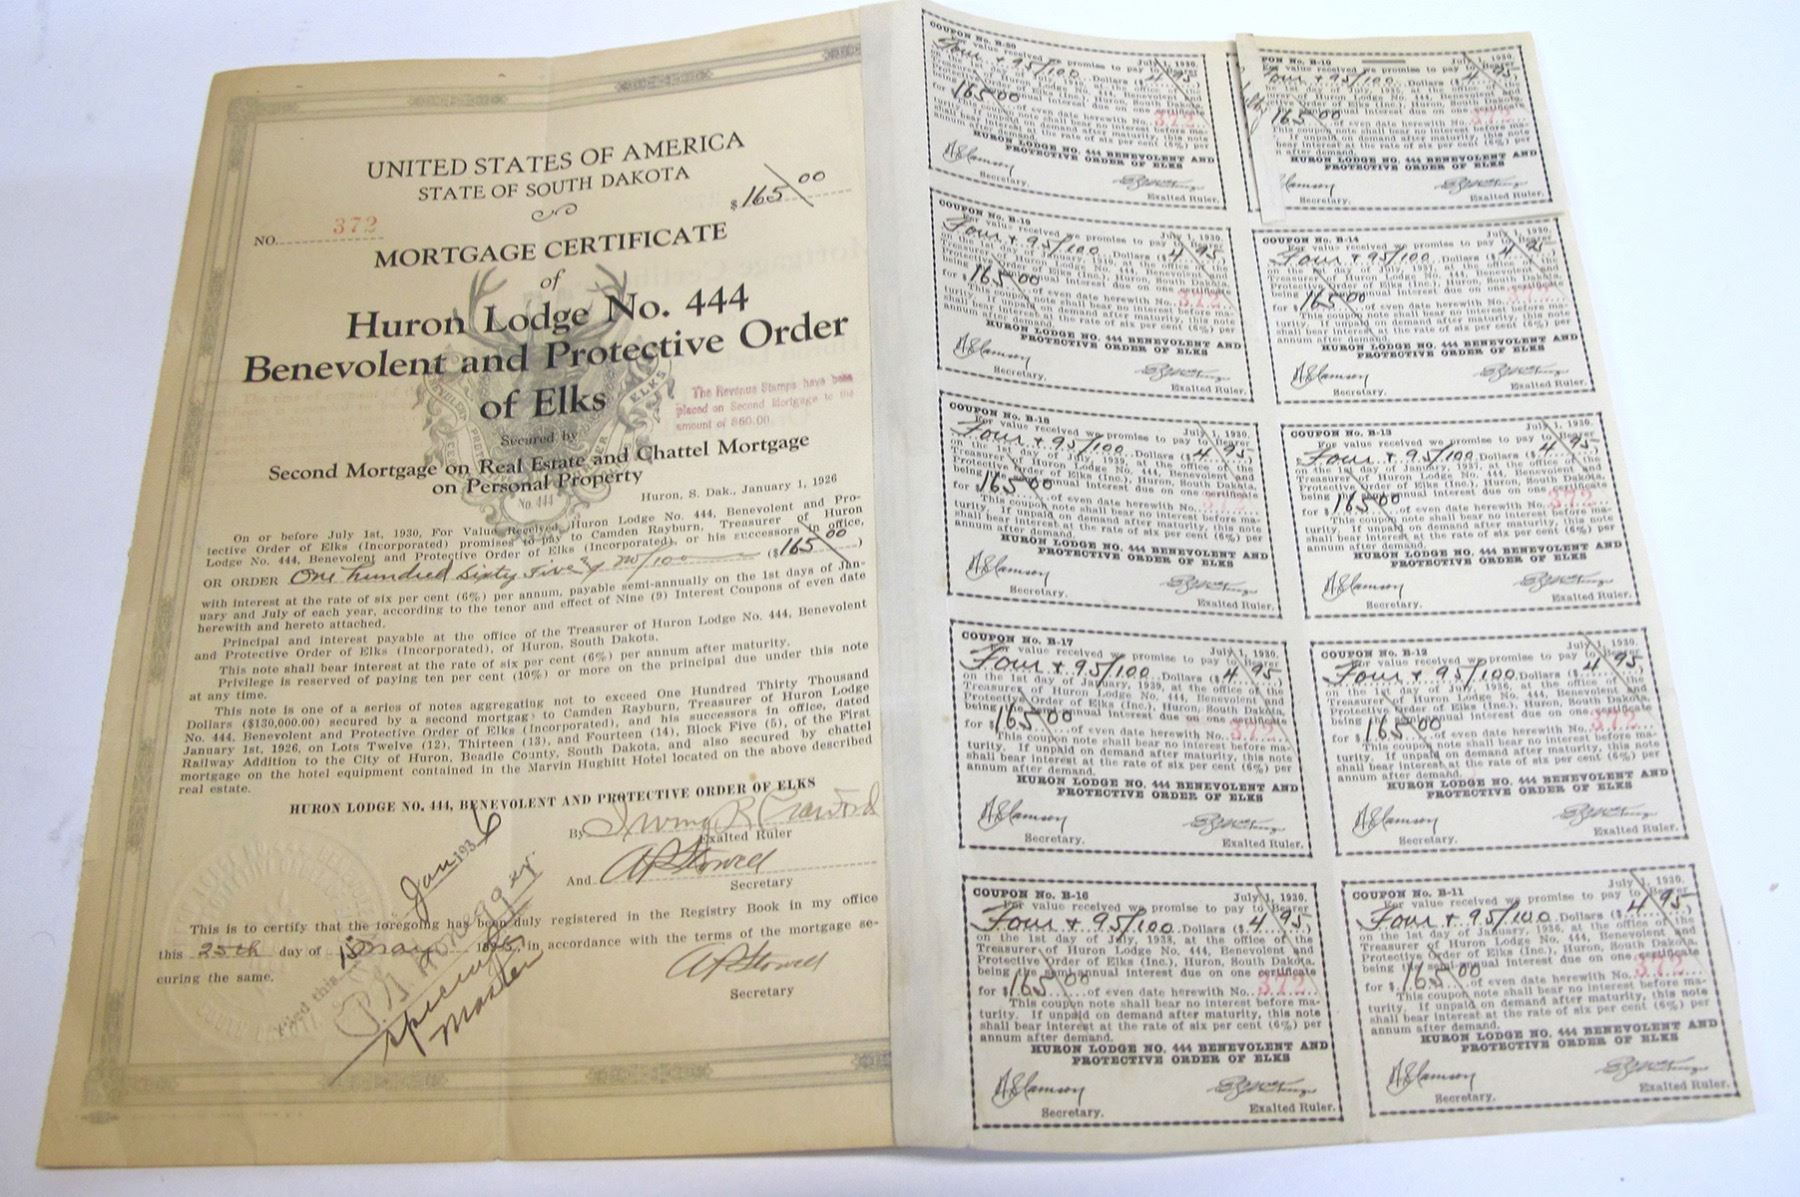 UNITED STATES OF AMERICA
STATE OF SOUTH DAKOTA
$165 00
NO. 372
MORTGAGE CERTIFICATE
of
Huron Lodge No. 444
Benevolent and Protective Order
of Elks
The Revenue Stamps have been
placed on Second Mortgage to the
amount of $60.00.
Secured by
Second Mortgage on Real Estate and Chattel Mortgage
on Personal Property
No. 444
Huron, S. Dak., January 1, 1926
On or before July 1st, 1930, For Value Received, Huron Lodge No. 444, Benevolent and Pro-
tective Order of Elks (Incorporated) promises to pay to Camden Rayburn, Treasurer of Huron
Lodge No. 444, Benevolent and Protective Order of Elks (Incorporated), or his successors in office,
OR ORDER One hundred Sixty Five & no/100 ($165 00)
with interest at the rate of six per cent (6%) per annum, payable semi-annually on the 1st days of Jan-
uary and July of each year, according to the tenor and effect of Nine (9) Interest Coupons of even date
herewith and hereto attached.
Principal and interest payable at the office of the Treasurer of Huron Lodge No. 444, Benevolent
and Protective Order of Elks (Incorporated), of Huron, South Dakota.
This note shall bear interest at the rate of six per cent (6%) per annum after maturity.
Privilege is reserved of paying ten per cent (10%) or more on the principal due under this note
at any time.
This note is one of a series of notes aggregating not to exceed One Hundred Thirty Thousand
Dollars ($130,000.00) secured by a second mortgage to Camden Rayburn, Treasurer of Huron Lodge
No. 444, Benevolent and Protective Order of Elks (Incorporated), and his successors in office, dated
January 1st, 1926, on Lots Twelve (12), Thirteen (13), and Fourteen (14), Block Five (5), of the First
Railway Addition to the City of Huron, Beadle County, South Dakota, and also secured by chattel
mortgage on the hotel equipment contained in the Marvin Hughitt Hotel located on the above described
real estate.
HURON LODGE NO. 444, BENEVOLENT AND PROTECTIVE ORDER OF ELKS
By Irving R Crawford
Exalted Ruler
And A P Stowell
Secretary
This is to certify that the foregoing has been duly registered in the Registry Book in my office
this 25th day of in accordance with the terms of the mortgage se-
curing the same.
A P Stowell
Secretary
Filed this
Jan 1936
Special
Master
COUPON No. B-20 July 1, 1930.
For value received we promise to pay to Bearer
Four + 95/100 Dollars ($4 95)
Treasurer of Huron Lodge No. 444, Benevolent and
165 00 of even date herewith No. 372
This coupon note shall bear no interest before ma-
turity. If unpaid on demand after maturity, this note
shall bear interest at the rate of six per cent (6%) per
annum after demand.
HURON LODGE NO. 444 BENEVOLENT AND
PROTECTIVE ORDER OF ELKS
Secretary. Exalted Ruler.
COUPON No. B-19 July 1, 1930.
For value received we promise to pay to Bearer
Four + 95/100 Dollars ($4 95)
for $165 00 of even date herewith No. 372
This coupon note shall bear no interest before ma-
turity. If unpaid on demand after maturity, this note
shall bear interest at the rate of six per cent (6%) per
annum after demand.
HURON LODGE NO. 444 BENEVOLENT AND
PROTECTIVE ORDER OF ELKS
Secretary. Exalted Ruler.
COUPON No. B-18 July 1, 1930.
For value received we promise to pay to Bearer
Four + 95/100 Dollars ($4 95)
on the 1st day of July, 1939, at the office of the
Treasurer of Huron Lodge No. 444, Benevolent and
Protective Order of Elks (Inc.), Huron, South Dakota,
being the semi-annual interest due on one certificate
for $165 00 of even date herewith No. 372
This coupon note shall bear no interest before ma-
turity. If unpaid on demand after maturity, this note
shall bear interest at the rate of six per cent (6%) per
annum after demand.
HURON LODGE NO. 444 BENEVOLENT AND
PROTECTIVE ORDER OF ELKS
Secretary. Exalted Ruler.
COUPON No. B-17 July 1, 1930.
For value received we promise to pay to Bearer
Four + 95/100 Dollars ($4 95)
on the 1st day of January, 1939, at the office of the
Treasurer of Huron Lodge No. 444, Benevolent and
Protective Order of Elks (Inc.), Huron, South Dakota,
being the semi-annual interest due on one certificate
for $165 00 of even date herewith No. 372
This coupon note shall bear no interest before ma-
turity. If unpaid on demand after maturity, this note
shall bear interest at the rate of six per cent (6%) per
annum after demand.
HURON LODGE NO. 444 BENEVOLENT AND
PROTECTIVE ORDER OF ELKS
Secretary. Exalted Ruler.
COUPON No. B-16 July 1, 1930.
For value received we promise to pay to Bearer
Four + 95/100 Dollars ($4 95)
on the 1st day of July, 1938, at the office of the
Treasurer of Huron Lodge No. 444, Benevolent and
Protective Order of Elks (Inc.), Huron, South Dakota,
being the semi-annual interest due on one certificate
for $165 00 of even date herewith No. 372
This coupon note shall bear no interest before ma-
turity. If unpaid on demand after maturity, this note
shall bear interest at the rate of six per cent (6%) per
annum after demand.
HURON LODGE NO. 444 BENEVOLENT AND
PROTECTIVE ORDER OF ELKS
Secretary. Exalted Ruler.
PON No. B-10 July 1, 1930.
For value received we promise to pay to Bearer
Four + 95/100 Dollars ($4 95)
165 00 of even date herewith No. 372
This coupon note shall bear no interest before ma-
turity. If unpaid on demand after maturity, this note
bear interest at the rate of six per cent (6%) per
after demand.
HURON LODGE NO. 444 BENEVOLENT AND
PROTECTIVE ORDER OF ELKS
Secretary. Exalted Ruler.
COUPON No. B-14 July 1, 1930.
For value received we promise to pay to Bearer
Four + 95/100 Dollars ($4 95)
on the 1st day of July, 1937, at the office of the
for $165 00 of even date herewith No. 372
This coupon note shall bear no interest before ma-
turity. If unpaid on demand after maturity, this note
shall bear interest at the rate of six per cent (6%) per
annum after demand.
HURON LODGE NO. 444 BENEVOLENT AND
PROTECTIVE ORDER OF ELKS
Secretary. Exalted Ruler.
COUPON No. B-13 July 1, 1930.
For value received we promise to pay to Bearer
Four + 95/100 Dollars ($4 95)
on the 1st day of January, 1937, at the office of the
Treasurer of Huron Lodge No. 444, Benevolent and
Protective Order of Elks (Inc.), Huron, South Dakota,
being the semi-annual interest due on one certificate
for $165 00 of even date herewith No. 372
This coupon note shall bear no interest before ma-
turity. If unpaid on demand after maturity, this note
shall bear interest at the rate of six per cent (6%) per
annum after demand.
HURON LODGE NO. 444 BENEVOLENT AND
PROTECTIVE ORDER OF ELKS
Secretary. Exalted Ruler.
COUPON No. B-12 July 1, 1930.
For value received we promise to pay to Bearer
Four + 95/100 Dollars ($4 95)
on the 1st day of July, 1936, at the office of the
Treasurer of Huron Lodge No. 444, Benevolent and
Protective Order of Elks (Inc.), Huron, South Dakota,
being the semi-annual interest due on one certificate
for $165 00 of even date herewith No. 372
This coupon note shall bear no interest before ma-
turity. If unpaid on demand after maturity, this note
shall bear interest at the rate of six per cent (6%) per
annum after demand.
HURON LODGE NO. 444 BENEVOLENT AND
PROTECTIVE ORDER OF ELKS
Secretary. Exalted Ruler.
COUPON No. B-11 July 1, 1930.
For value received we promise to pay to Bearer
Four + 95/100 Dollars ($4 95)
on the 1st day of January, 1936, at the office of the
Treasurer of Huron Lodge No. 444, Benevolent and
Protective Order of Elks (Inc.), Huron, South Dakota,
being the semi-annual interest due on one certificate
for $165 00 of even date herewith No. 372
This coupon note shall bear no interest before ma-
turity. If unpaid on demand after maturity, this note
shall bear interest at the rate of six per cent (6%) per
annum after demand.
HURON LODGE NO. 444 BENEVOLENT AND
PROTECTIVE ORDER OF ELKS
Secretary. Exalted Ruler.